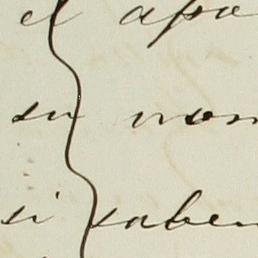 el apo
su nom
si saben